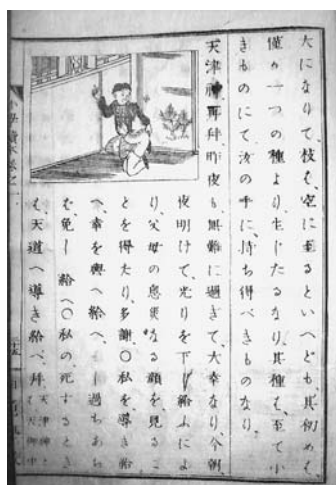 大になりて、枝は、空に至るといへども其初めは、
僅か一つの種より、生じたるなり、其種は、至て小
きものにて汝の手に、持ち得べきものなり、
天津神再拜昨夜も無難に過ぎて、大幸なり、今朝
夜明けて、光りを下し給ふによ
り、父母の息災なる顔を見るこ
とを得たり、多謝〇私を導き給
へ、幸を與へ給へ、もし過ちあら
ば、免し給へ〇私の死するとき
は、天道へ導き給へ、拜
天津神と
は天御中
小學讀本卷之一
十五